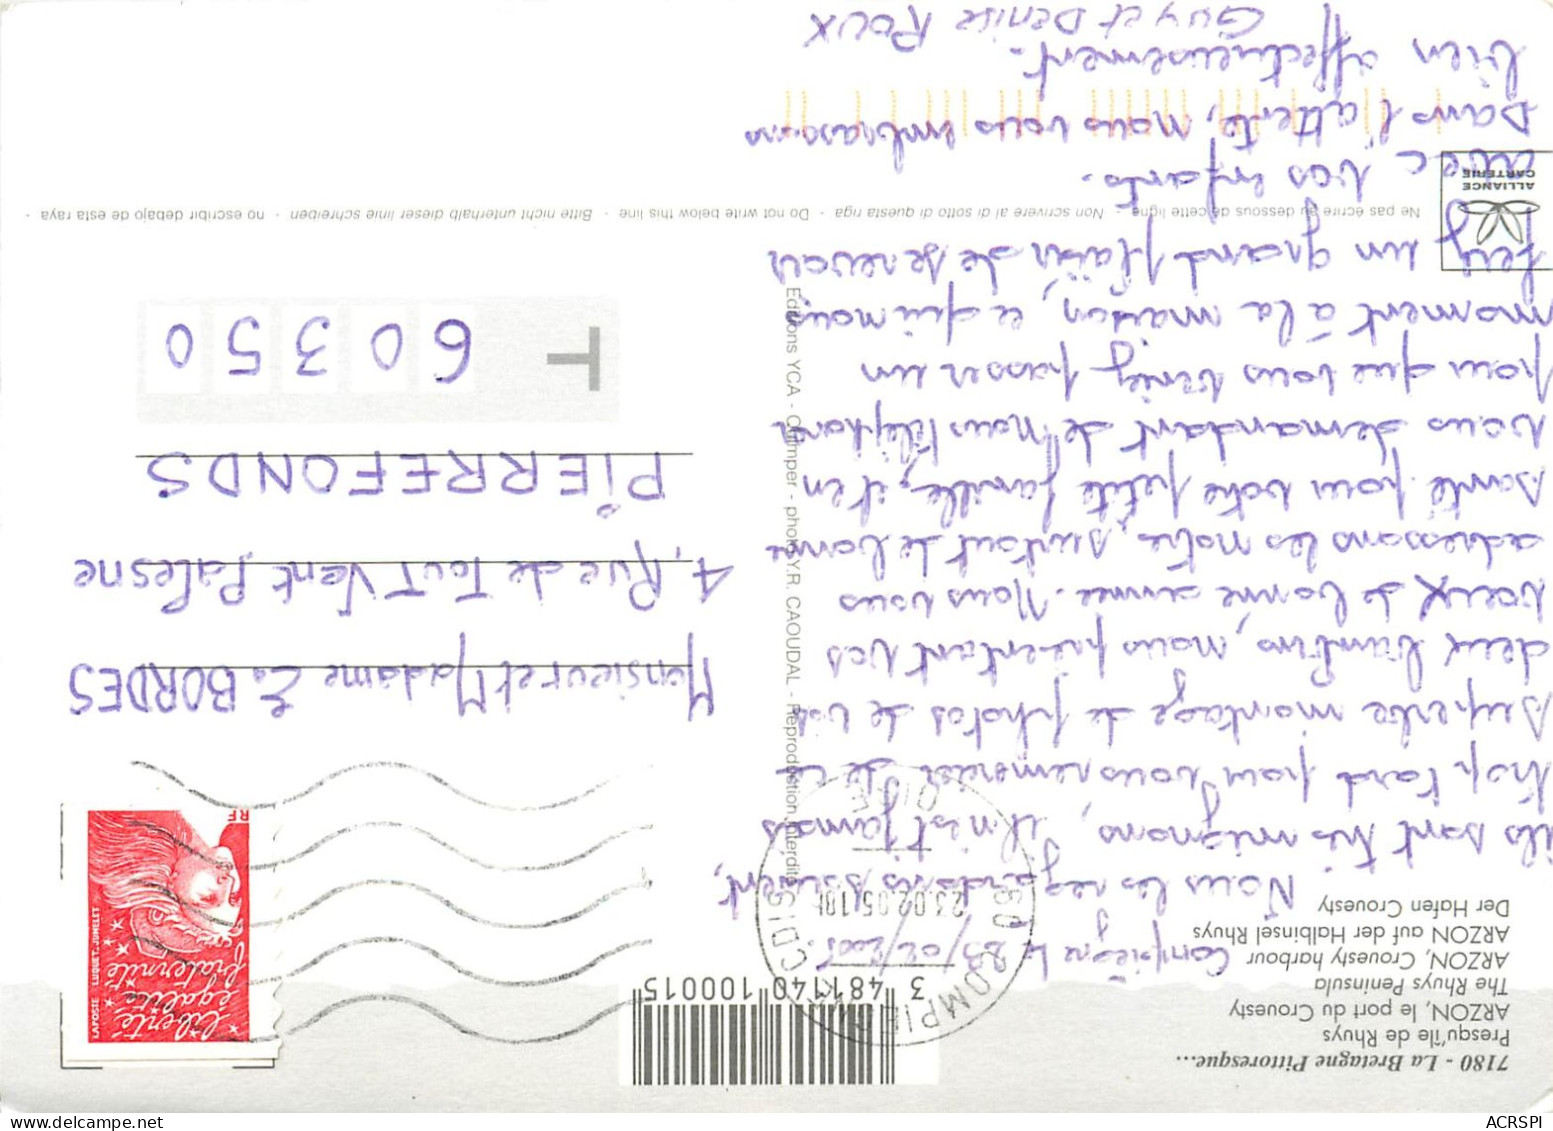 7180 - La Bretagne Pittoresque...
Presqu'île de Rhuys
ARZON, le port du Crouesty
The Rhuys Peninsula
ARZON, Crouesty harbour
ARZON auf der Halbinsel Rhuys
Der Hafen Crouesty
3 481140 100015
Compiègne le 23/02/2005.
Nous les regardons souvent,
ils sont très mignons, il n'est jamais
trop tard pour vous remercier de ce
superbe montage de photos de vos
deux bambins, nous présentant vos
voeux de bonne année. Nous vous
adressons les nôtres, surtout de bonne
santé pour votre petite famille, et en
vous demandant de nous téléphoner
pour que vous veniez passer un
moment à la maison, ce qui nous
fera un grand plaisir de se revoir
avec vos enfants.
Dans l'attente, nous vous embrassons
bien affectueusement.
Guy et Denise ROUX
COMPIEGNE CDIS
60 OISE
23.02.05
Editions YCA - Quimper - photo Y.R. CAOUDAL - Reproduction interdite
liberté
égalité
fraternité
LA POSTE
LUQUET-JUMELET
RF
Monsieur et Madame E. BORDES
4, Rue de Tout Vent Palesne
PIERREFONDS
60350
Ne pas écrire au dessous de cette ligne - Non scrivere al di sotto di questa riga - Do not write below this line - Bitte nicht unterhalb dieser linie schreiben - no escribir debajo de esta raya -
ALLIANCE
CARTERIE
ACRSPI